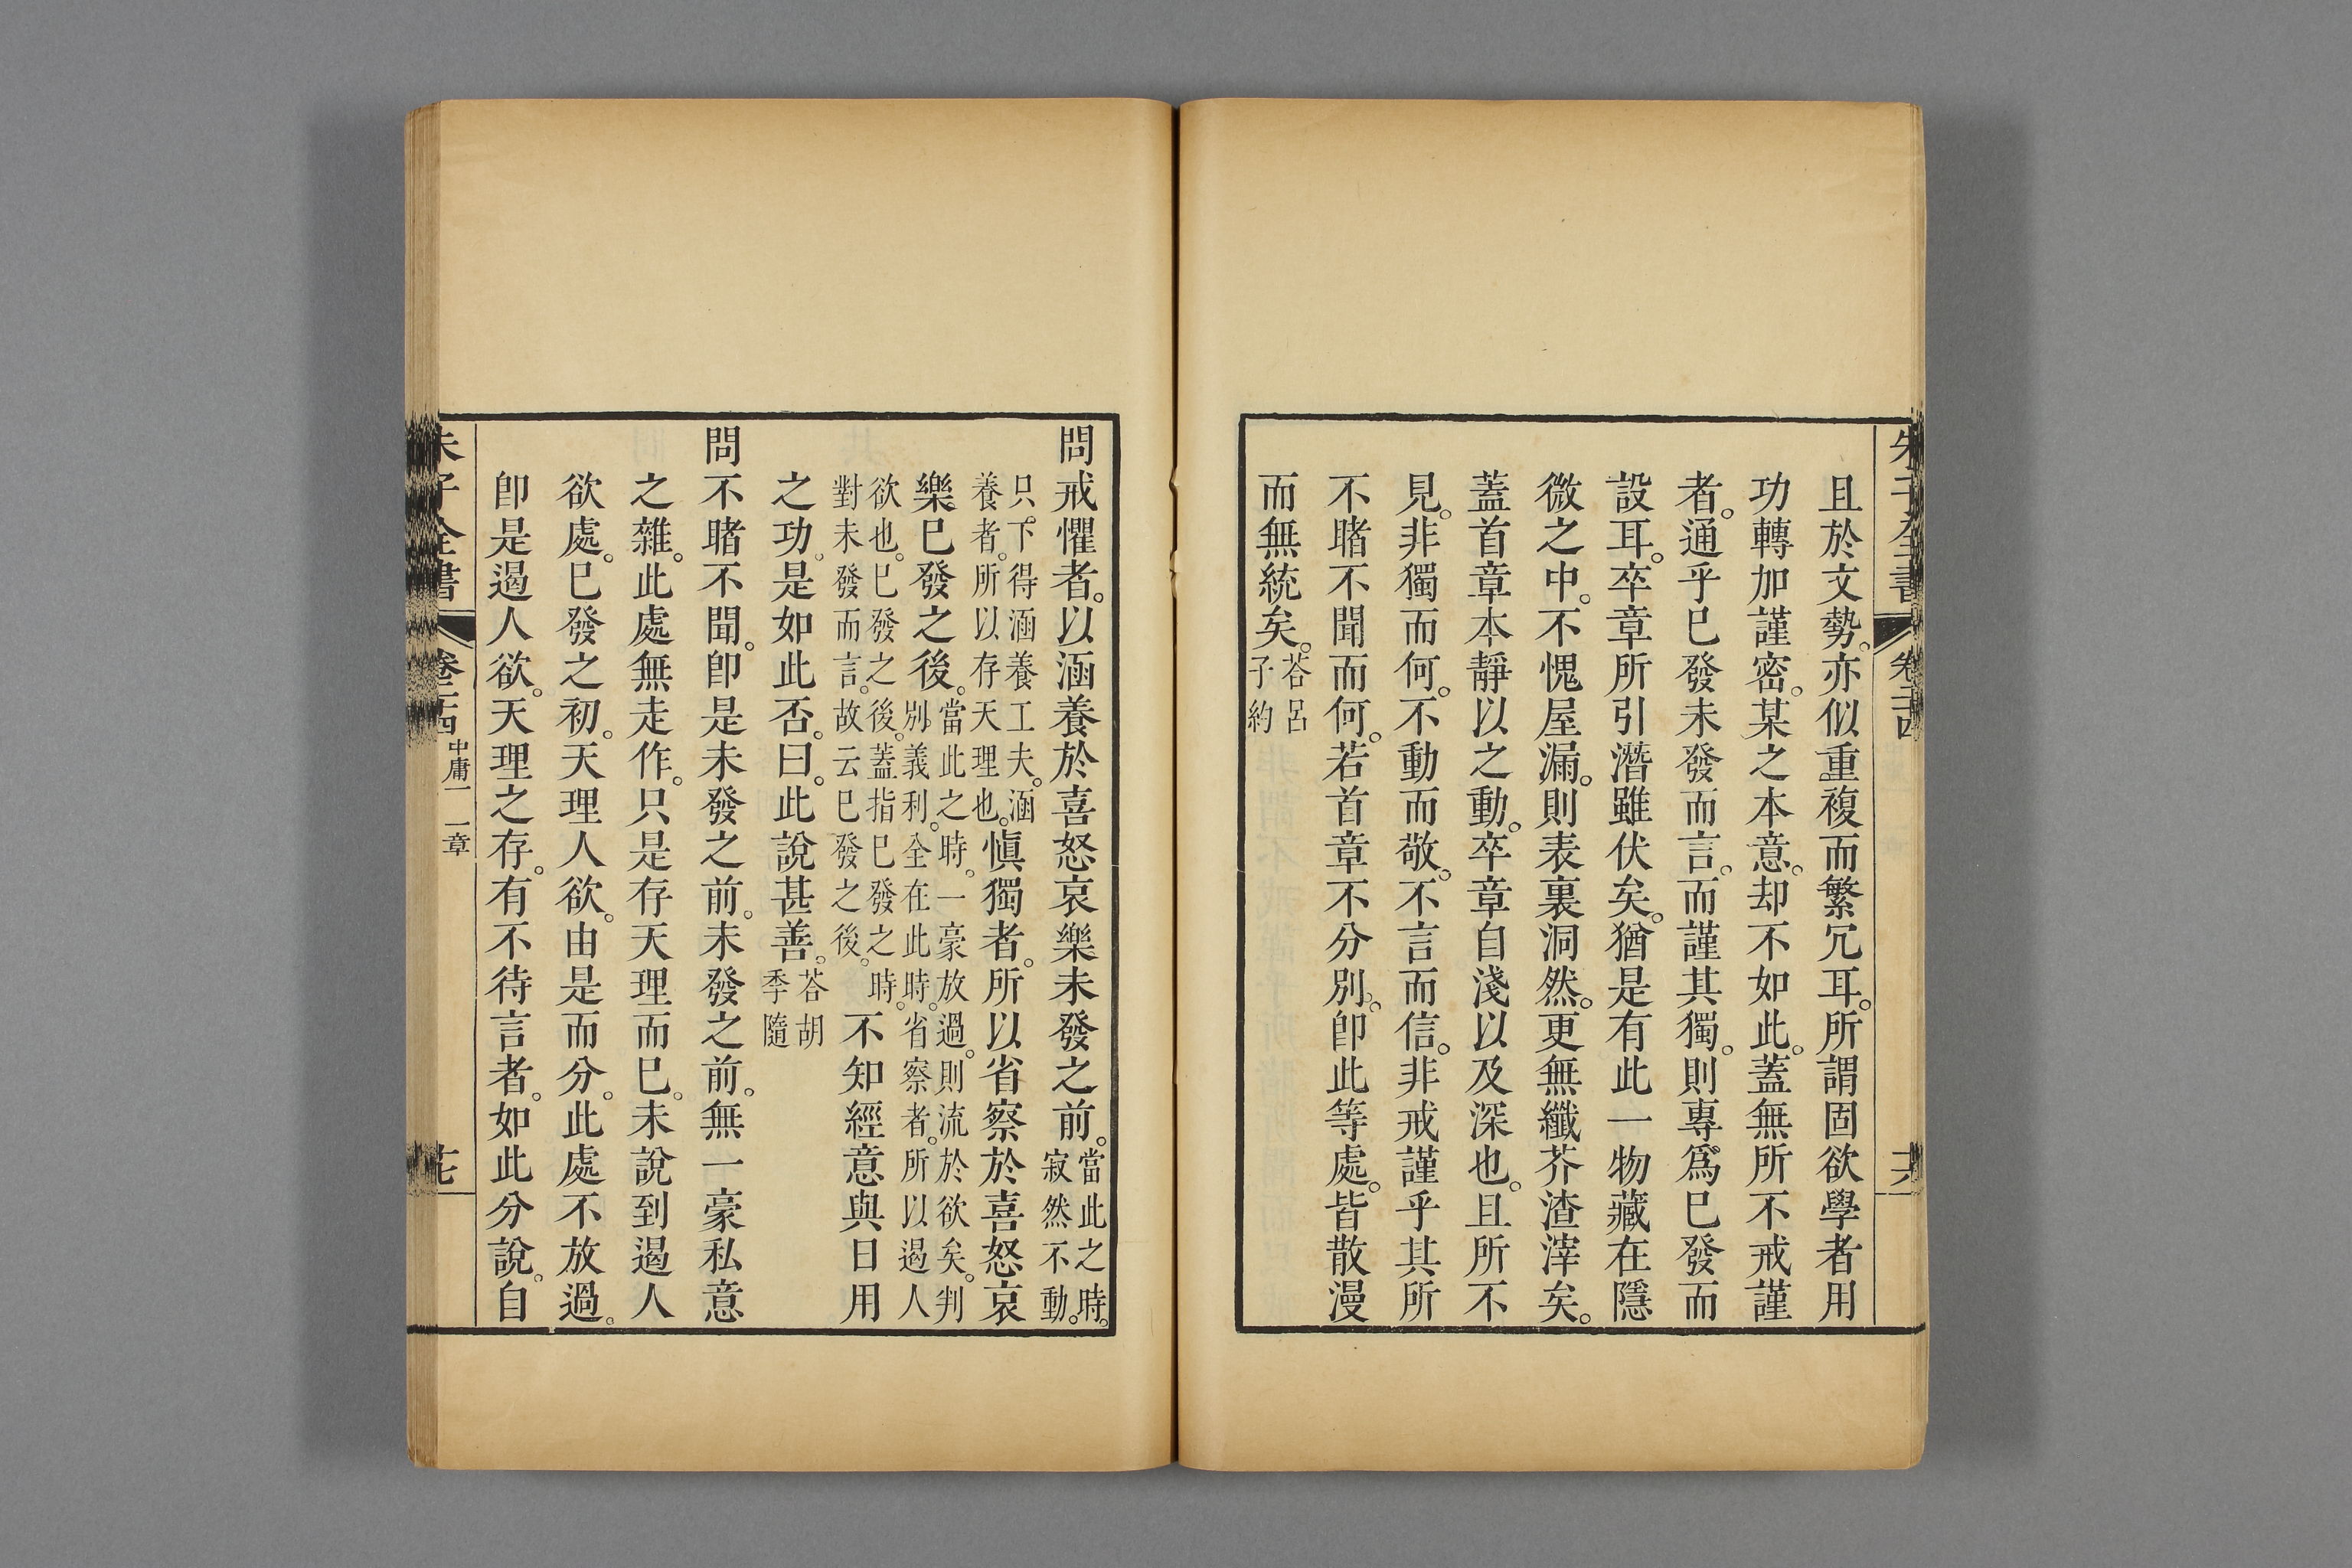 朱子全書
卷二十四
且於文勢。亦似重複而繁冗耳。所謂固欲學者用
功轉加謹密。某之本意。却不如此。蓋無所不戒謹
者。通乎巳發未發而言。而謹其獨。則專爲巳發而
設耳。卒章所引潛雖伏矣。猶是有此一物藏在隱
微之中。不愧屋漏。則表裏洞然。更無纖芥渣滓矣。
蓋首章本靜以之動。卒章自淺以及深也。且所不
見。非獨而何。不動而敬。不言而信。非戒謹乎其所
不睹不聞而何。若首章不分別。卽此等處。皆散漫
而無統矣。荅呂子約
問戒懼者。以涵養於喜怒哀樂未發之前。當此之時。寂然不動。
只。下得涵養工夫。涵養者。所以存天理也。愼獨者。所以省察於喜怒哀
樂巳發之後。當此之時。一豪放過。則流於欲矣。判別義利。全在此時。省察者。所以遏人
欲也。巳發之後。蓋指巳發之時。對未發而言。故云巳發之後。不知經意與日用
之功。是如此否。曰。此說甚善。荅胡季隨
問不睹不聞。卽是未發之前。未發之前。無一豪私意
之雜。此處無走作。只是存天理而巳。未說到遏人
欲處。巳發之初。天理人欲。由是而分。此處不放過。
卽是遏人欲。天理之存。有不待言者。如此分說。自
朱子全書
卷二十四
中庸二 一章